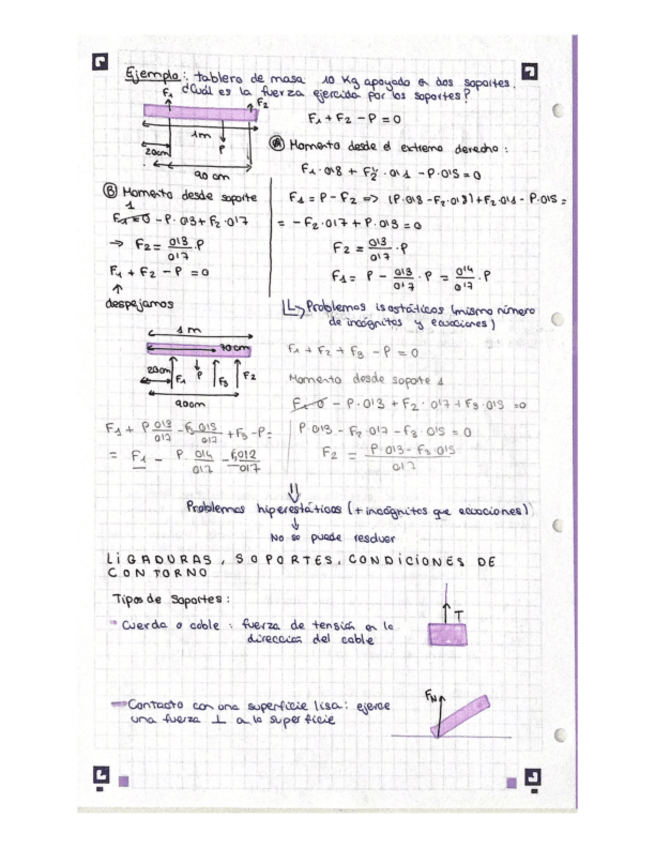 Ejemplo: tablero de masa 10 Kg apoyado en dos soportes.
¿Cuál es la fuerza ejercida por los soportes?
F1
F2
1m
20cm
P
90 cm
F1 + F2 - P = 0
Ⓐ Momento desde el extremo derecho:
F1 · 0'8 + F2 · 0'1 - P · 0'5 = 0
F1 = P - F2 => (P·0'8 - F2·0'8) + F2·0'1 - P·0'5 =
= - F2·0'7 + P·0'3 = 0
F2 = 0'3/0'7 · P
F1 = P - 0'3/0'7 · P = 0'4/0'7 · P
Ⓑ Momento desde soporte
1
F1·0 - P·0'3 + F2·0'7
→ F2 = 0'3/0'7 · P
F1 + F2 - P = 0
↑
despejamos
↳ Problemas isostáticos (mismo número
de incógnitas y ecuaciones)
1 m
70cm
20cm
F1
P
F3
F2
90cm
F1 + F2 + F3 - P = 0
Momento desde soporte 1
F1·0 - P·0'3 + F2·0'7 + F3·0'5 = 0
P·0'3 - F2·0'7 - F3·0'5 = 0
F2 = P·0'3 - F3·0'5 / 0'7
F1 + P 0'3/0'7 - F3 0'5/0'7 + F3 - P =
= F1 - P·0'4/0'7 - F3 0'2/0'7
⇓
Problemas hiperestáticos (+ incógnitas que ecuaciones)
↓
No se puede resolver
LIGADURAS, SOPORTES, CONDICIONES DE
CONTORNO
Tipos de Soportes:
Cuerda o cable: fuerza de tensión en la
dirección del cable
T
Contacto con una superficie lisa: ejerce
una fuerza ⊥ a la superficie
FN